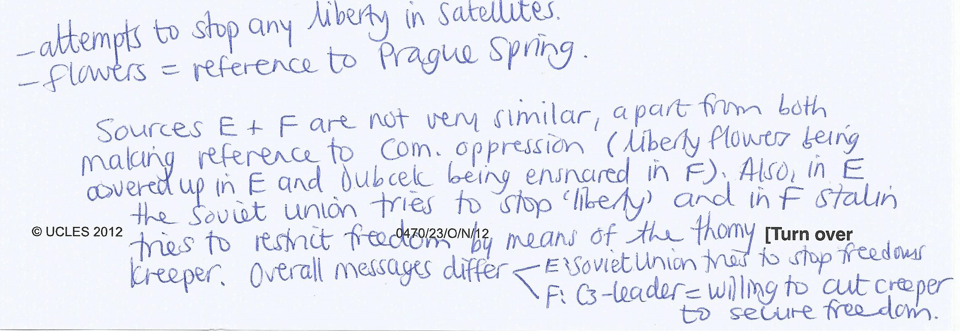 - attempts to stop any liberty in satellites.
- flowers = reference to Prague Spring.
Sources E + F are not very similar, apart from both
making reference to com. oppression (liberty flower being
covered up in E and Dubcek being ensnared in F). Also, in E
the Soviet Union tries to stop 'liberty' and in F Stalin
© UCLES 2012 0470/23/O/N/12 [Turn over
tries to restrict freedom by means of the thorny
creeper. Overall messages differ < E: Soviet Union tries to stop freedoms
F: Cz-leader = willing to cut creeper
to secure freedom.